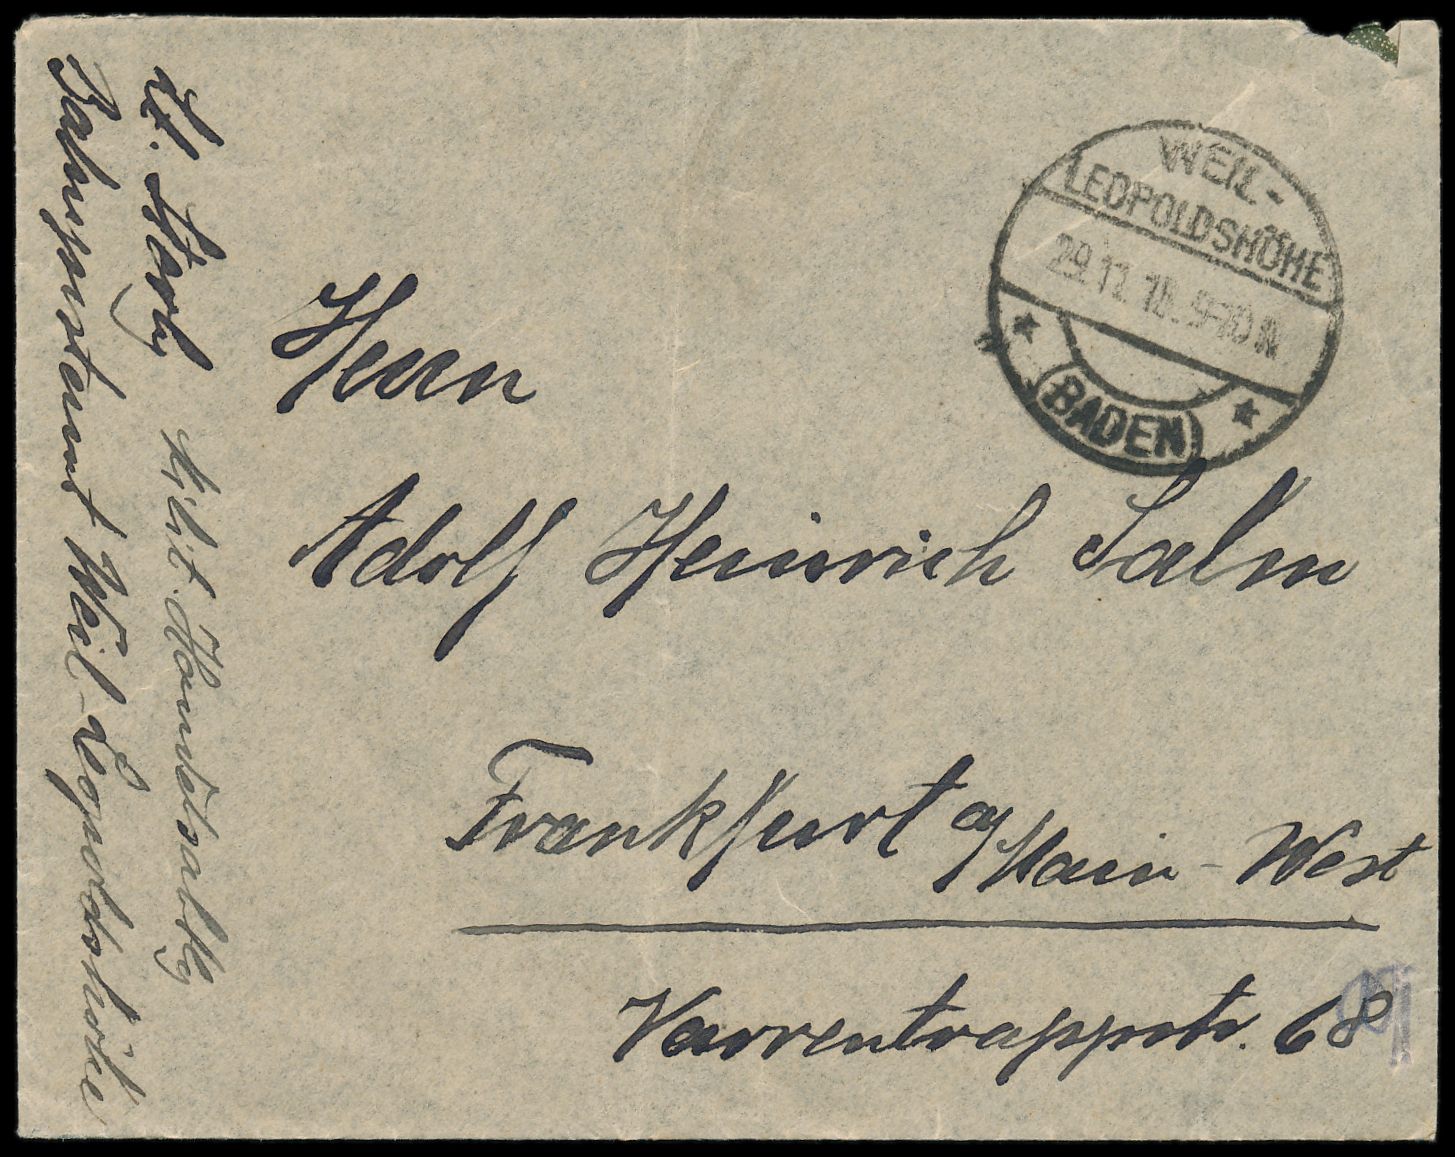 WEIL-
LEOPOLDSHÖHE
29.11.18. 9-10 N
BADEN
Herrn
Adolf Heinrich Salm
Frankfurt a/Main-West
Varrentrappstr. 68
Milit. Handelsabtlg
Bahnpostamt Weil-Leopoldshöhe